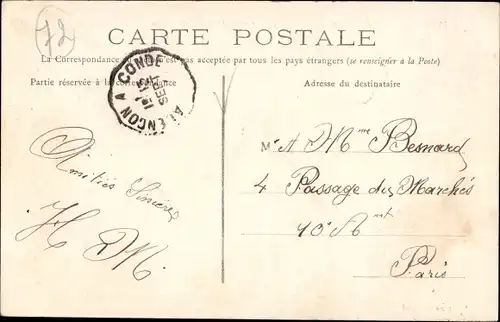 72
CARTE POSTALE
La Correspondance n'est pas acceptée par tous les pays étrangers (se renseigner à la Poste)
Partie réservée à la correspondance
Adresse du destinataire
ALENÇON A CONDE
SEPT
Amitiés Sincères
H M
Mr A Mme Besnard
4 Passage des Marchés
10e Amt
Paris